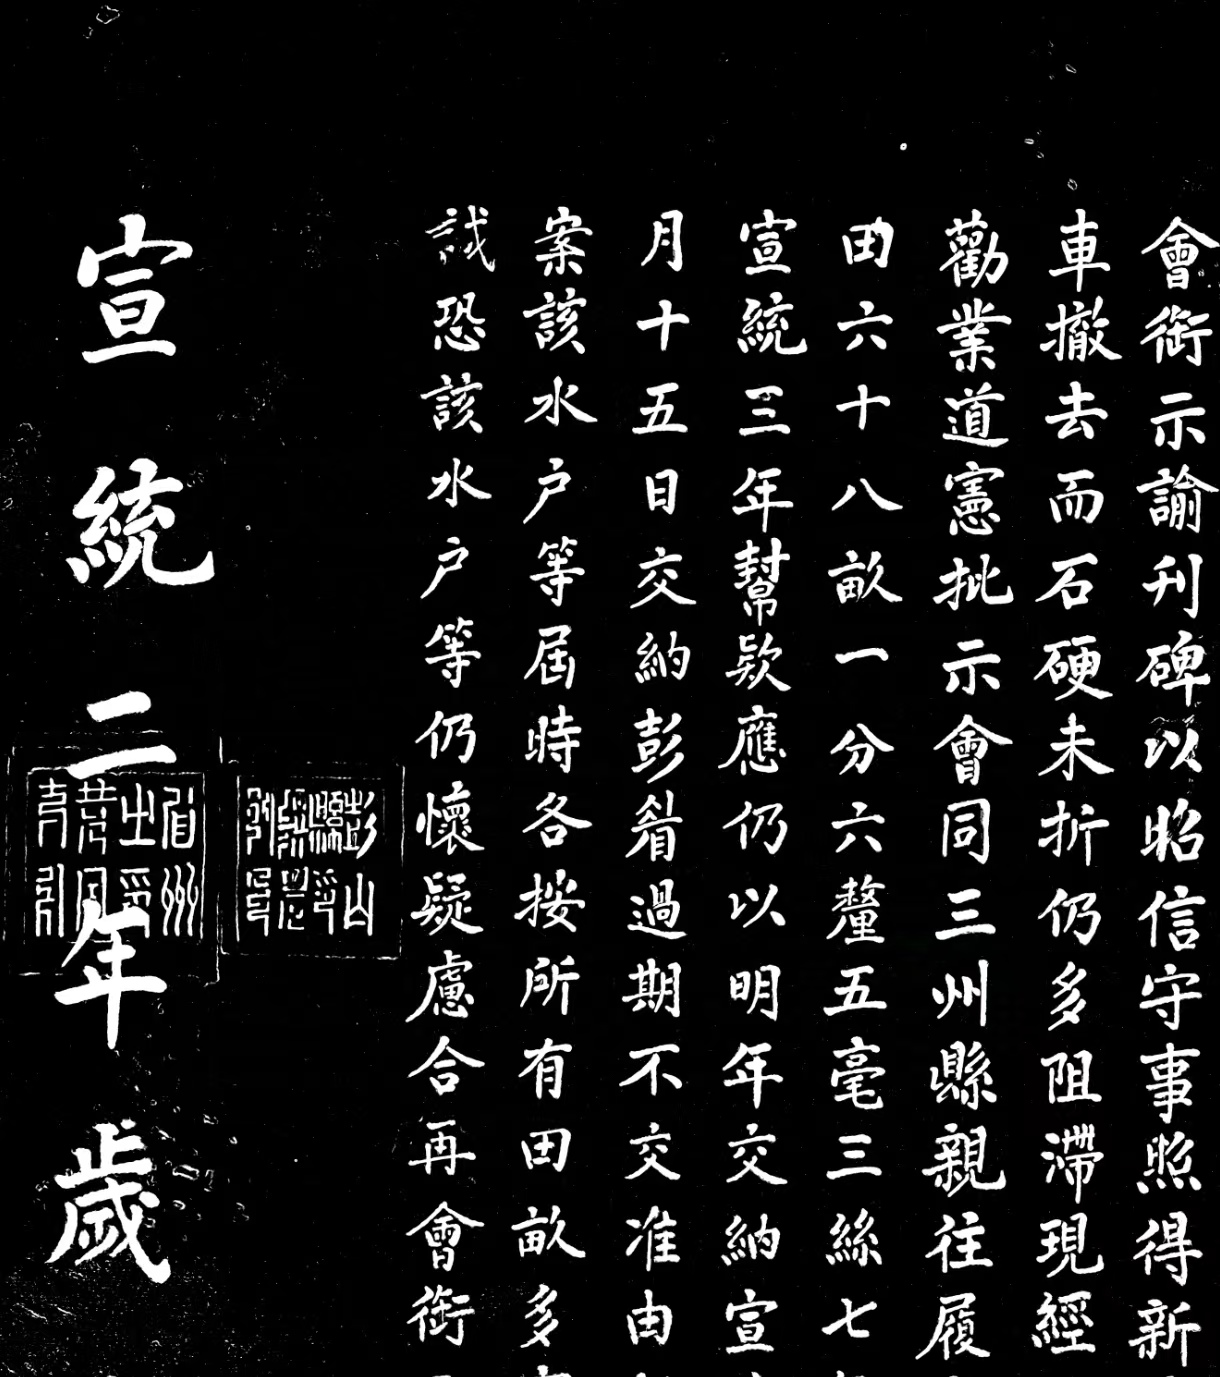 會銜示諭刊碑以昭信守事照得新
車撤去而石硬未折仍多阻滯現經
勸業道憲批示會同三州縣親往履
田六十八畝一分六釐五毫三絲七
宣統三年幫款應仍以明年交納宣
月十五日交納彭眉過期不交准由
案該水户等屆時各按所有田畝多
誠恐該水户等仍懷疑慮合再會銜
宣統二年歲